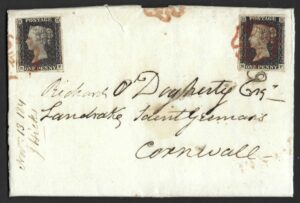 POSTAGE
ONE PENNY
POSTAGE
ONE PENNY
Richard O'Dogherty Esqr
Landrake, Saint Germans
Cornwall
Novr 13 1841
J Hicks